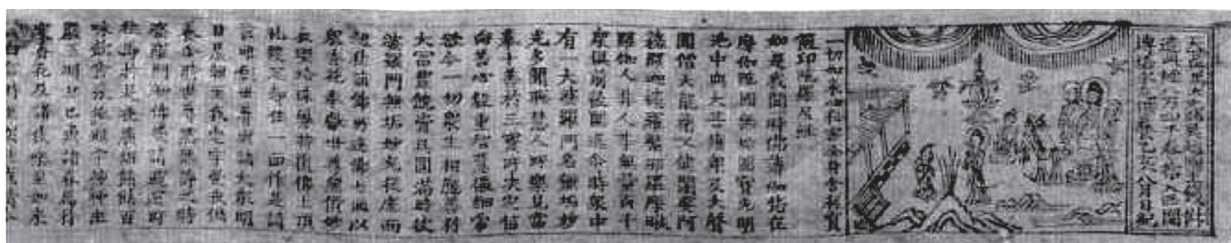 天下兵馬大元帥吳越國王錢俶
造此經八万四千卷捨入西關
塼塔永充供養乙亥八月日紀
一切如來心祕密全身舍利寶
篋印陀羅尼經
如是我聞一時佛薄伽梵在
摩伽陀國無垢園寶光明
池中與大菩薩眾及大聲
聞僧天龍藥叉健闥婆阿
蘇羅迦樓羅緊那羅摩睺
羅伽人非人等無量百千
眾俱前後圍遶爾時眾中
有一大婆羅門名無垢妙
光多聞聰慧人所樂見常
奉十善於三寶所決定信
向善心殷重智慧微細常
欲令一切眾生相應善利
大富豐饒資具圓滿時彼
婆羅門無垢妙光從座而
起往詣佛所遶佛七匝以
眾香花奉獻世尊無價妙
衣瓔珞珠鬘持覆佛上頂
禮雙足却住一面作是請
言唯願世尊與諸大眾明
日晨朝至我宅中受我供
養爾時世尊默然許之時
婆羅門知佛受請遽還所
住即於是夜廣辦餚饍百
味飲食
嚴至明旦已與諸眷屬持
眾香花及諸伎樂至如來